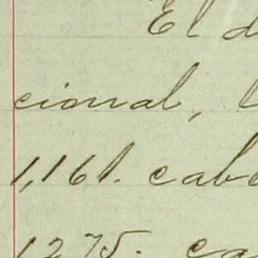 El d
cional, l
1,161. cabe
1275. ca